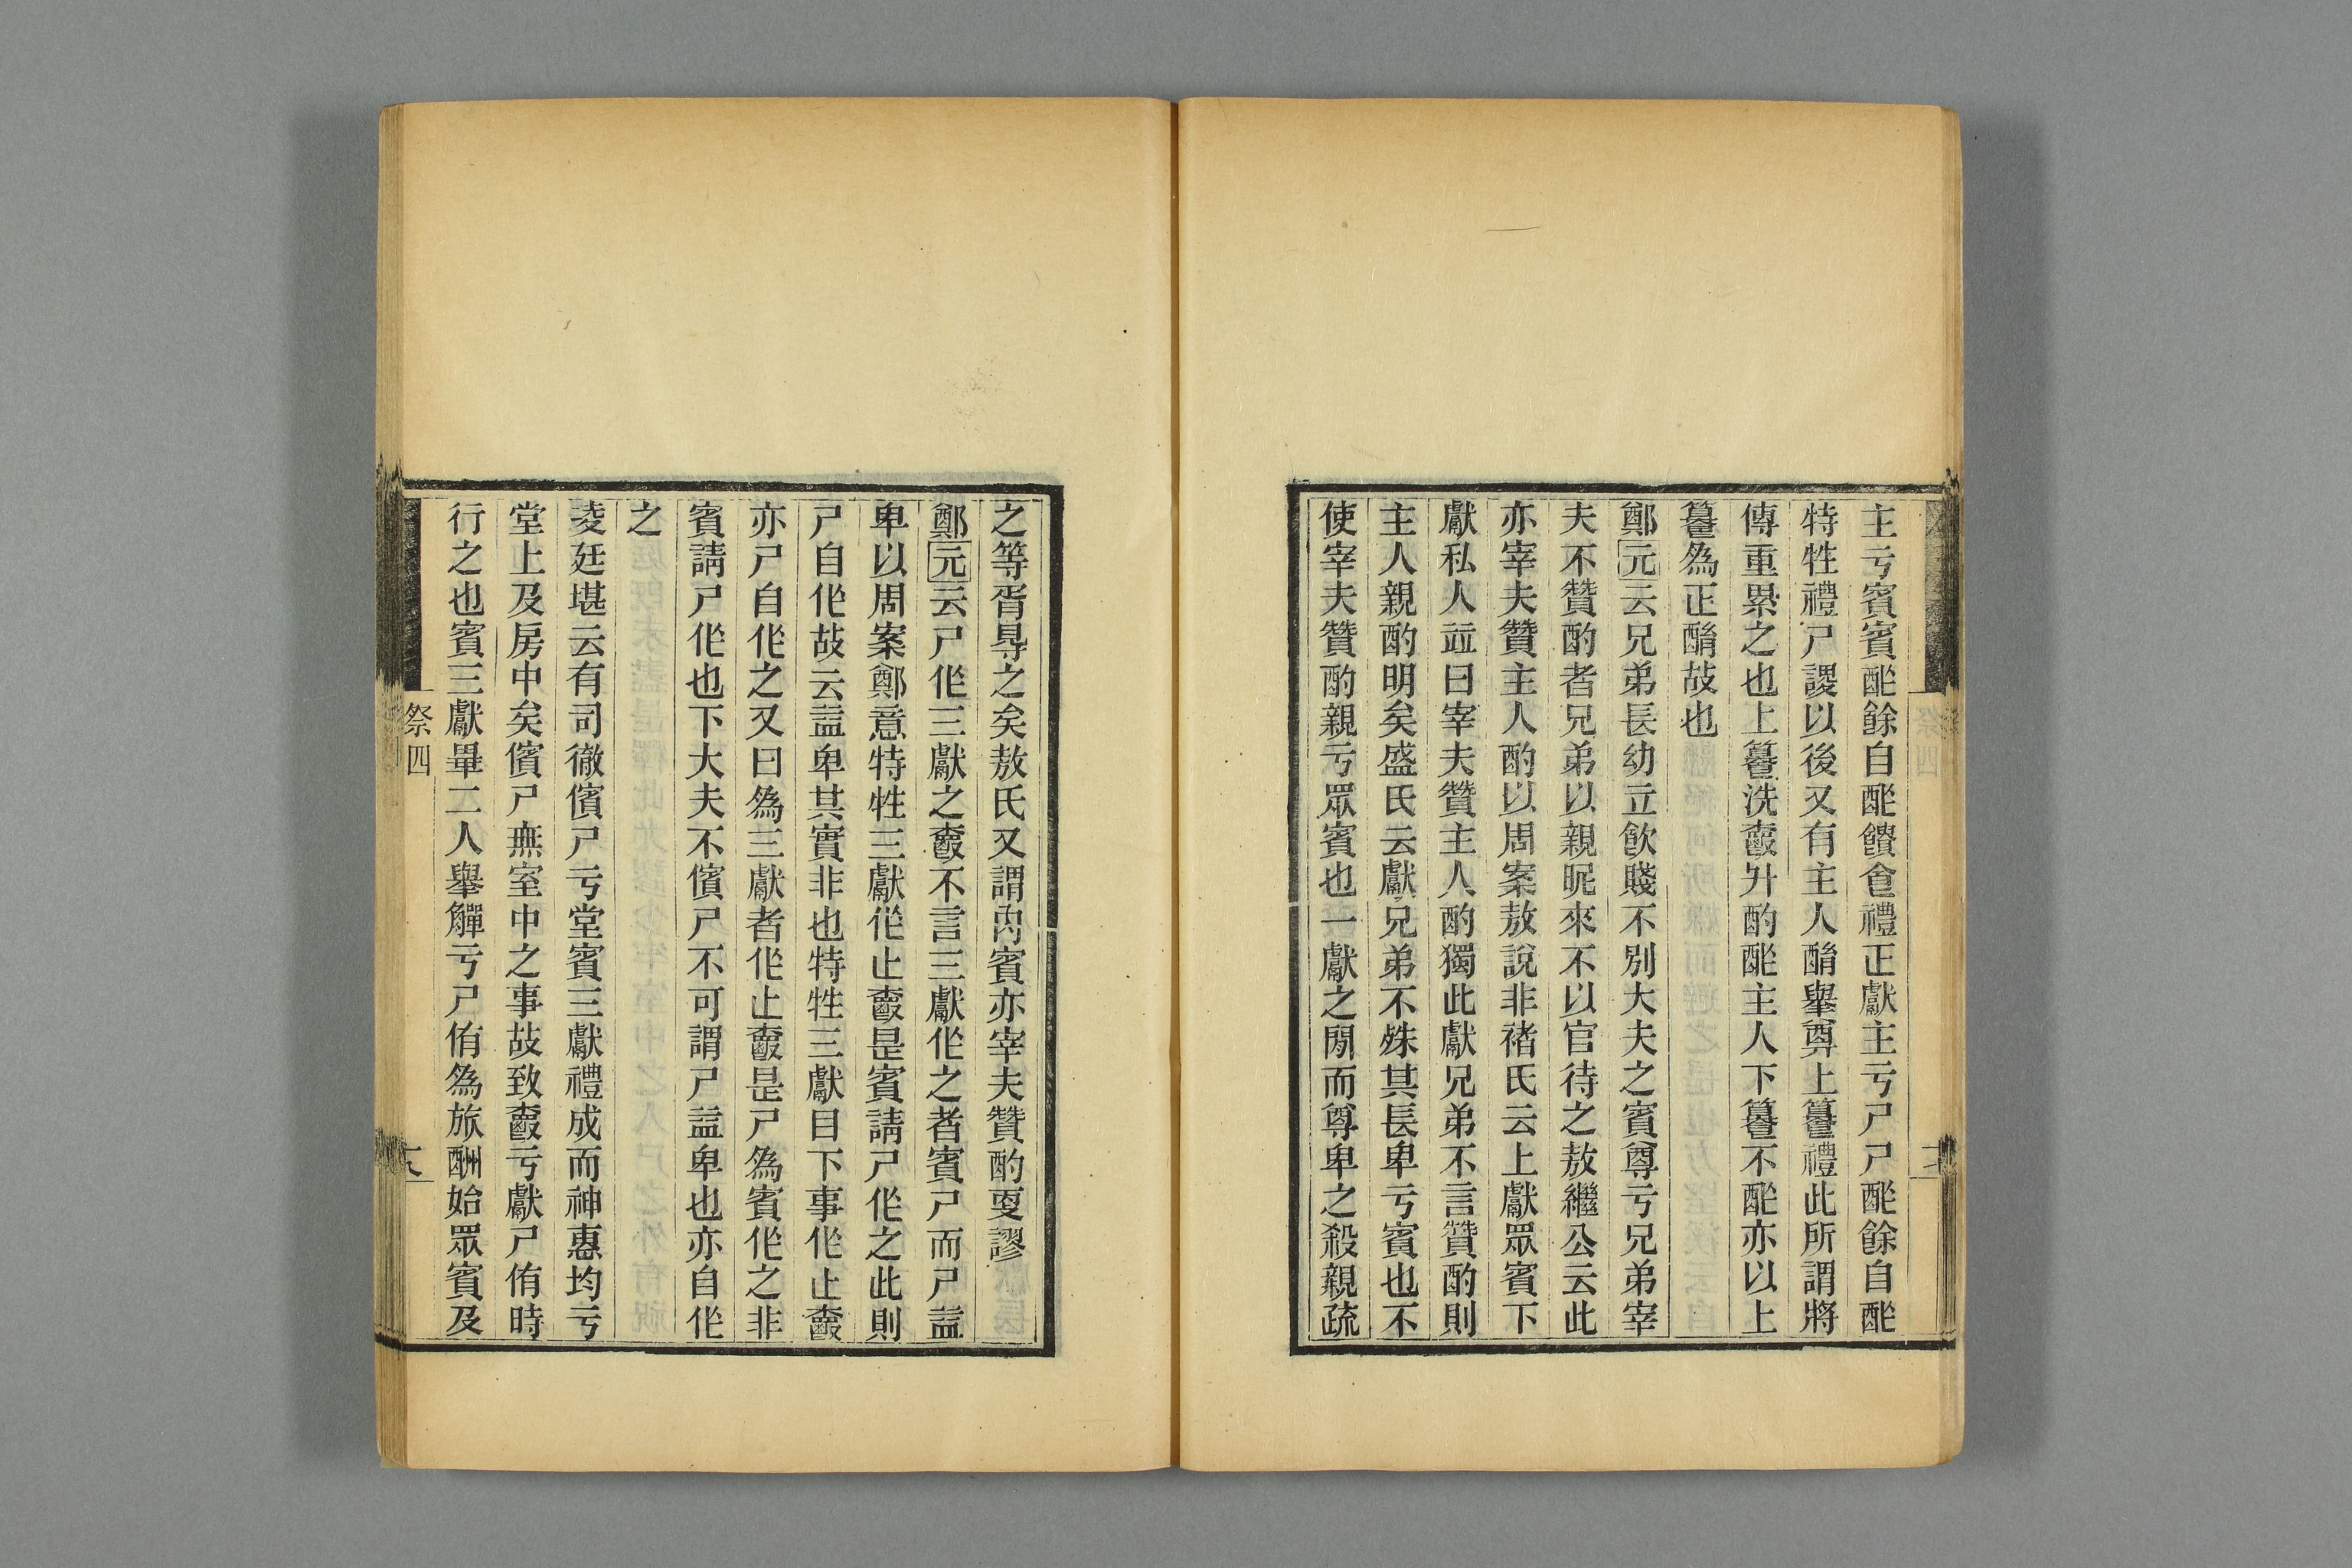 主亏賓賓酢餘自酢饋𠊊禮正獻主亏尸尸酢餘自酢
特牲禮尸謖以後又有主人酳舉奠上籑禮此所謂將
傳重累之也上籑洗𩰥升酌酢主人下籑不酢亦以上
籑為正酳故也
鄭元云兄弟長幼立飲賤不別大夫之賓尊亏兄弟宰
夫不贊酌者兄弟以親昵來不以官待之敖繼公云此
亦宰夫贊主人酌以周案敖說非褚氏云上獻眾賓下
獻私人竝曰宰夫贊主人酌獨此獻兄弟不言贊酌則
主人親酌明矣盛氏云獻兄弟不殊其長卑亏賓也不
使宰夫贊酌親亏眾賓也一獻之閒而尊卑之殺親疏
之等胥㝵之矣敖氏又謂內賓亦宰夫贊酌叓謬
鄭元云尸作三獻之𩰥不言三獻作之者賓尸而尸益
卑以周案鄭意特牲三獻作止𩰥是賓請尸作之此則
尸自作故云益卑其實非也特牲三獻目下事作止𩰥
亦尸自作之又曰為三獻者作止𩰥是尸為賓作之非
賓請尸作也下大夫不儐尸不可謂尸益卑也亦自作
之
凌廷堪云有司徹儐尸亏堂賓三獻禮成而神惠均亏
堂上及房中矣儐尸無室中之事故致𩰥亏獻尸侑時
行之也賓三獻畢二人舉觶亏尸侑為旅酬始眾賓及
祭四